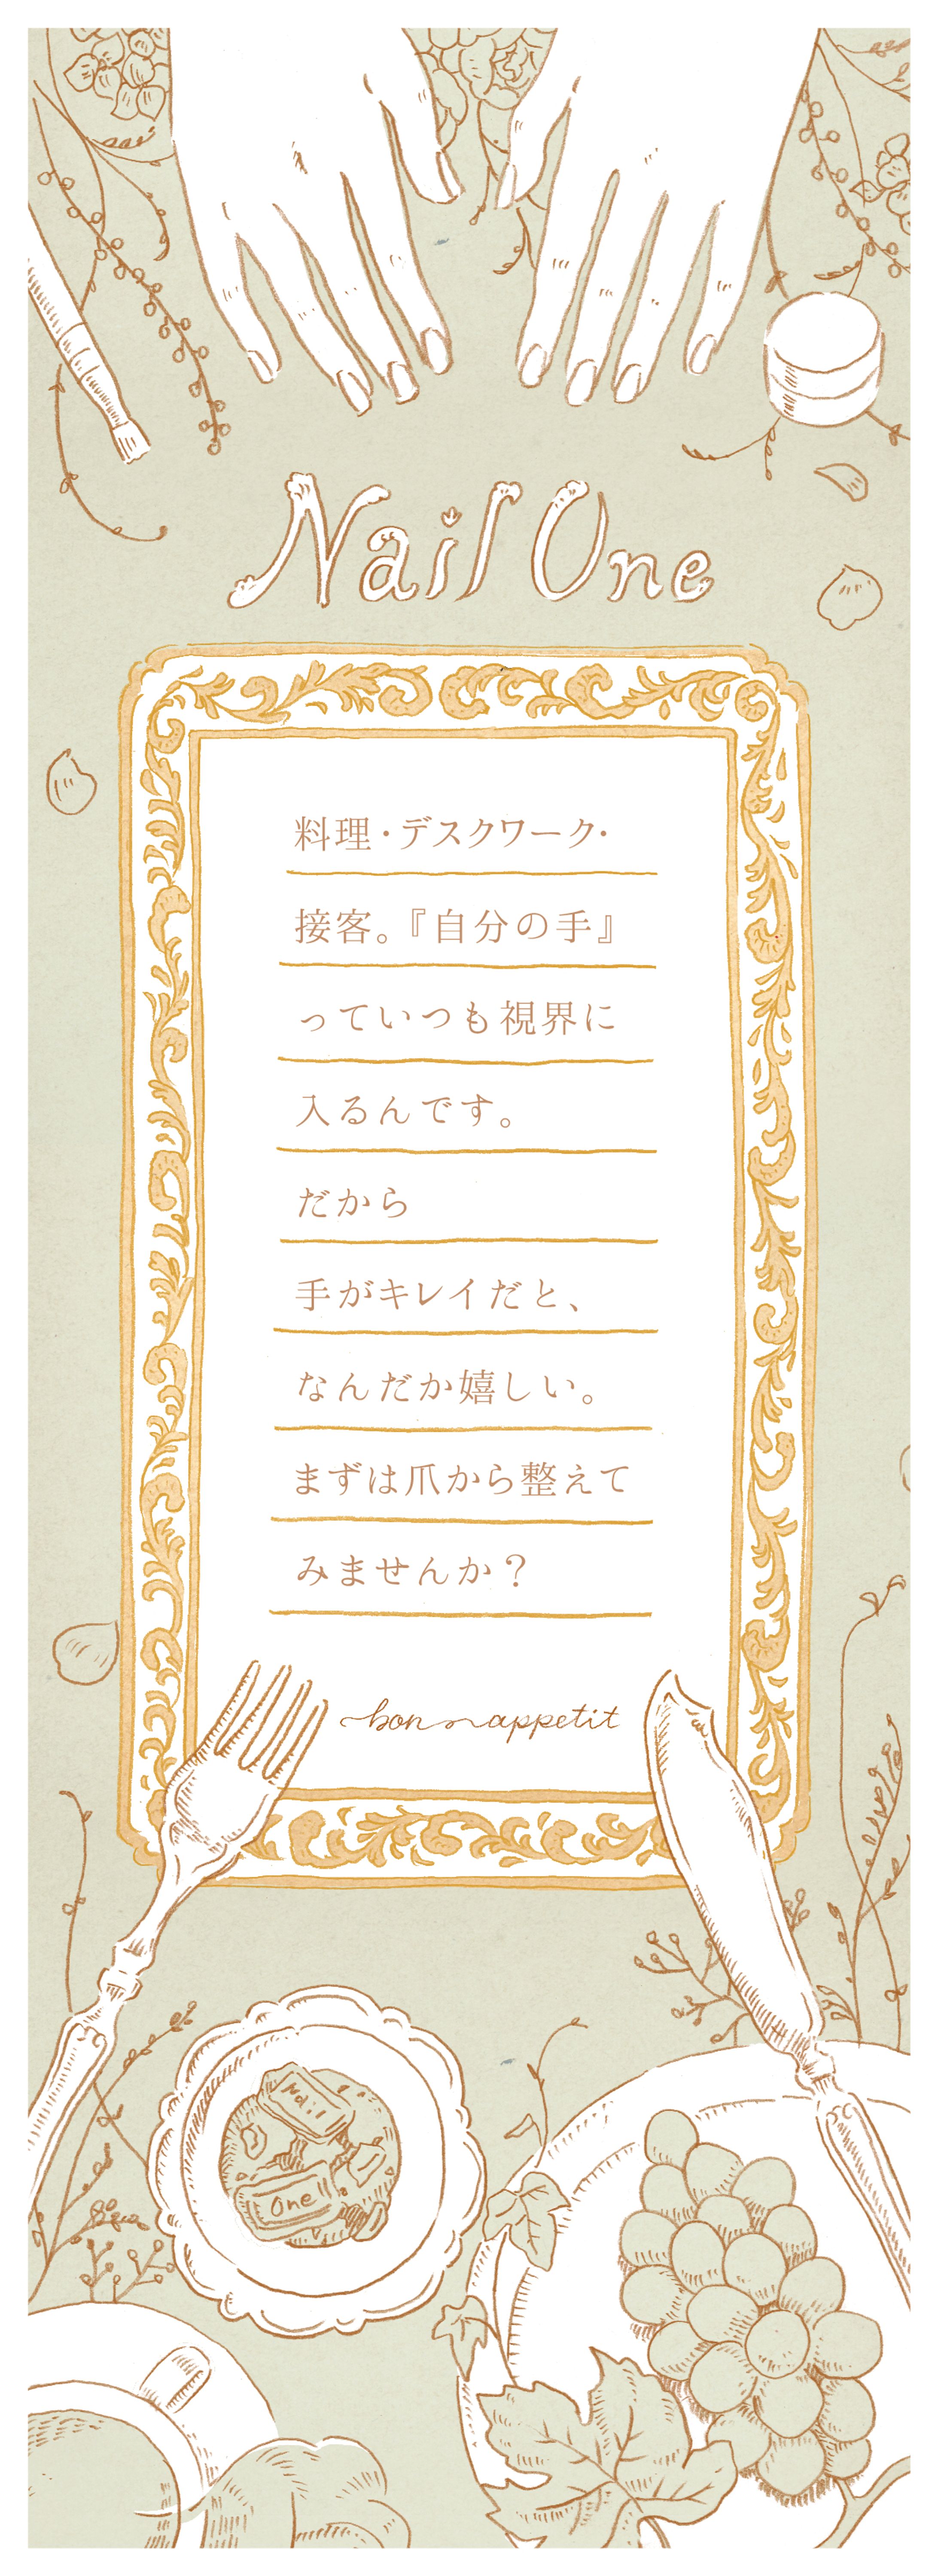 Nail One
料理・デスクワーク・
接客。『自分の手』
っていつも視界に
入るんです。
だから
手がキレイだと、
なんだか嬉しい。
まずは爪から整えて
みませんか？
bon appetit
Nail
One!!